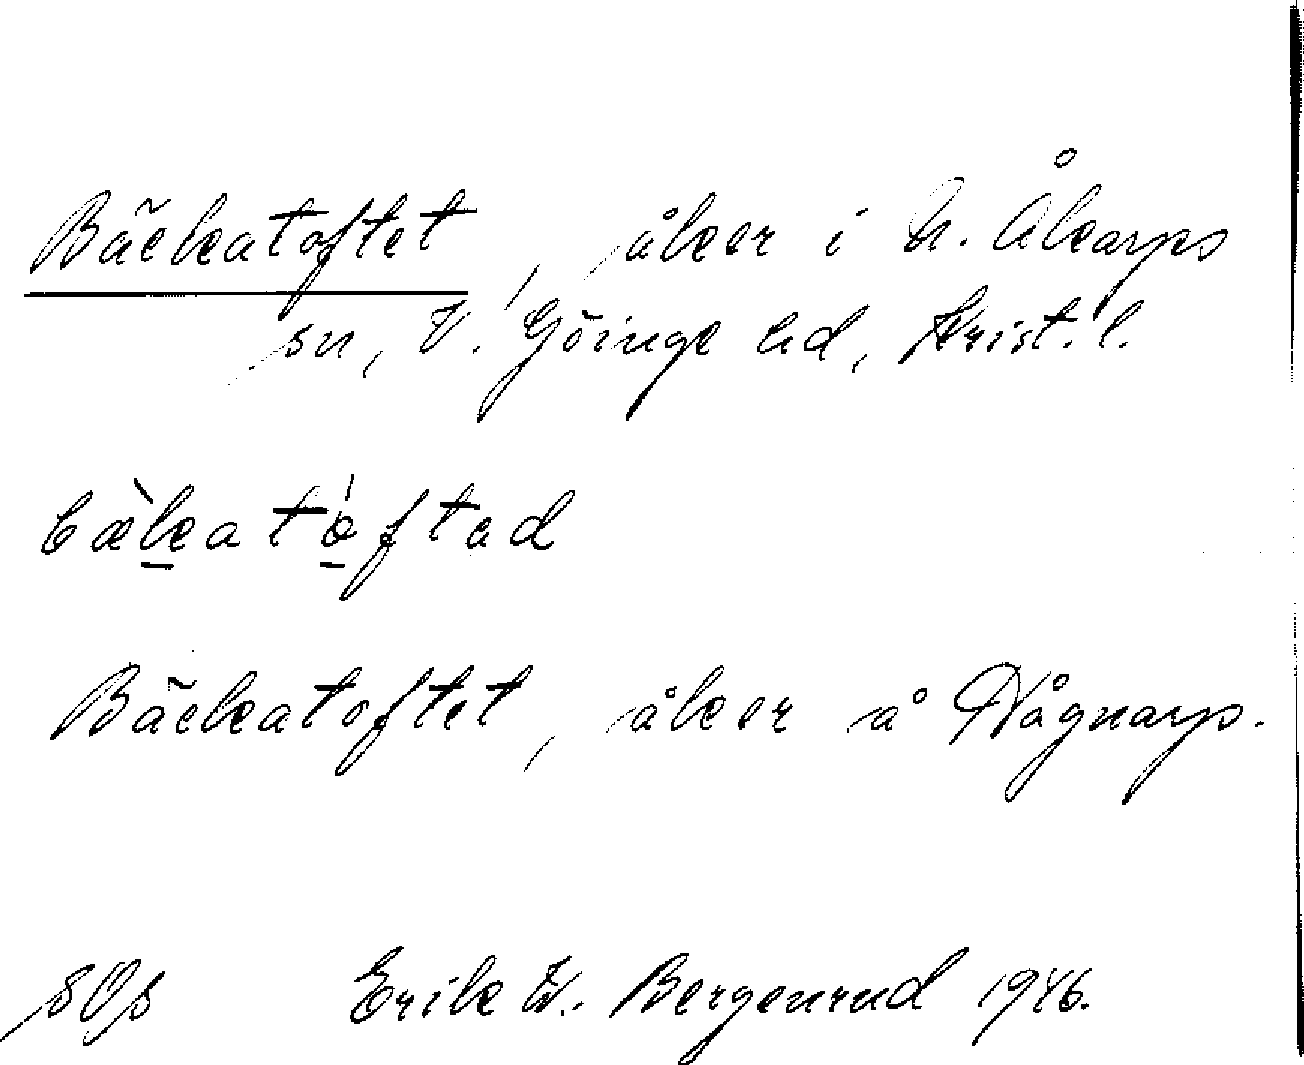 Bäckatoftet, åker i N. Åkarps
sn, V. Göinge hd, Krist. l.
bækatoftad
Bäckatoftet, åker å Någnarp.
Erik W. Bergenrud 1946.